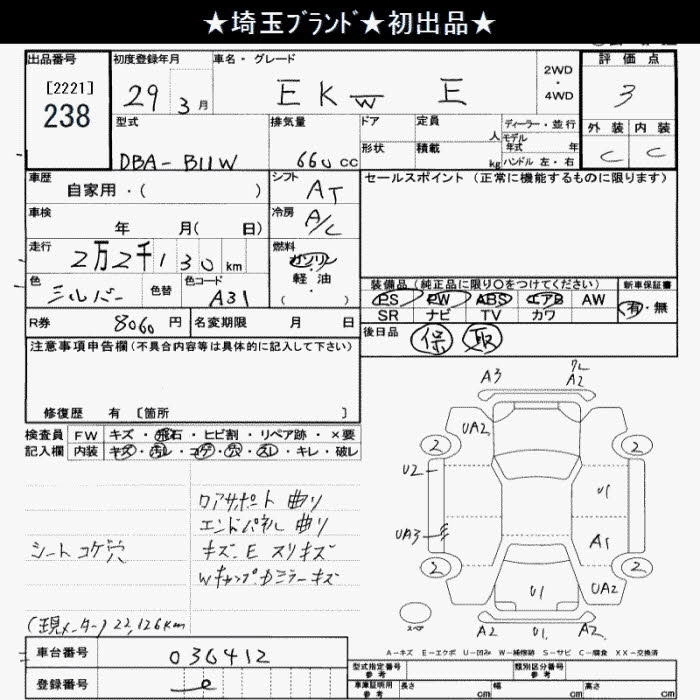 ★埼玉ﾌﾞﾗﾝﾄﾞ★初出品★
出品番号 初度登録年月 車名・グレード 2WD・4WD 評価点
[2221]
238
29 3月 EKW E 3
型式 排気量 ドア 定員 人 ディーラー・並行 外装 内装
モデル年式 年
DBA-B11W 660cc 形状 積載 kg ハンドル 左・右 C C
車歴 シフト セールスポイント (正常に機能するものに限ります)
自家用・( ) AT
車検 冷房
年 月( 日) A/C
走行 燃料
2万2千130km ガソリン
軽油
( )
色 色替 色コード 装備品(純正品に限り○をつけてください) 新車保証書
シルバー A31 PS PW ABS エアB AW 有・無
SR ナビ TV カワ
R券 8060円 名変期限 月 日 後日品 保 取
注意事項申告欄(不具合内容等は具体的に記入して下さい)
修復歴 有 [箇所 ]
検査員 FW キズ・飛石・ヒビ割・リペア跡・×要
記入欄 内装 キズ・汚レ・コゲ・穴・スレ・キレ・破レ
ロアサポート 曲リ
エンドパネル 曲リ
シート コゲ穴 キズ.E スリキズ
Wキャップ.Dミラーキズ
(現メーター) 22,126km
A3 A2
UA2
2 2
U2 U1
UA3 A1
2 2
U1 UA2
スペア A2 U1. A2
A-キズ E-エクボ U-凹み W-補修跡 S-サビ C-腐食 XX-交換済
車台番号 036412
型式指定番号 参考 類別区分番号 参考
登録番号 e
車庫証明用 参考 長さ cm 幅 cm 高さ cm